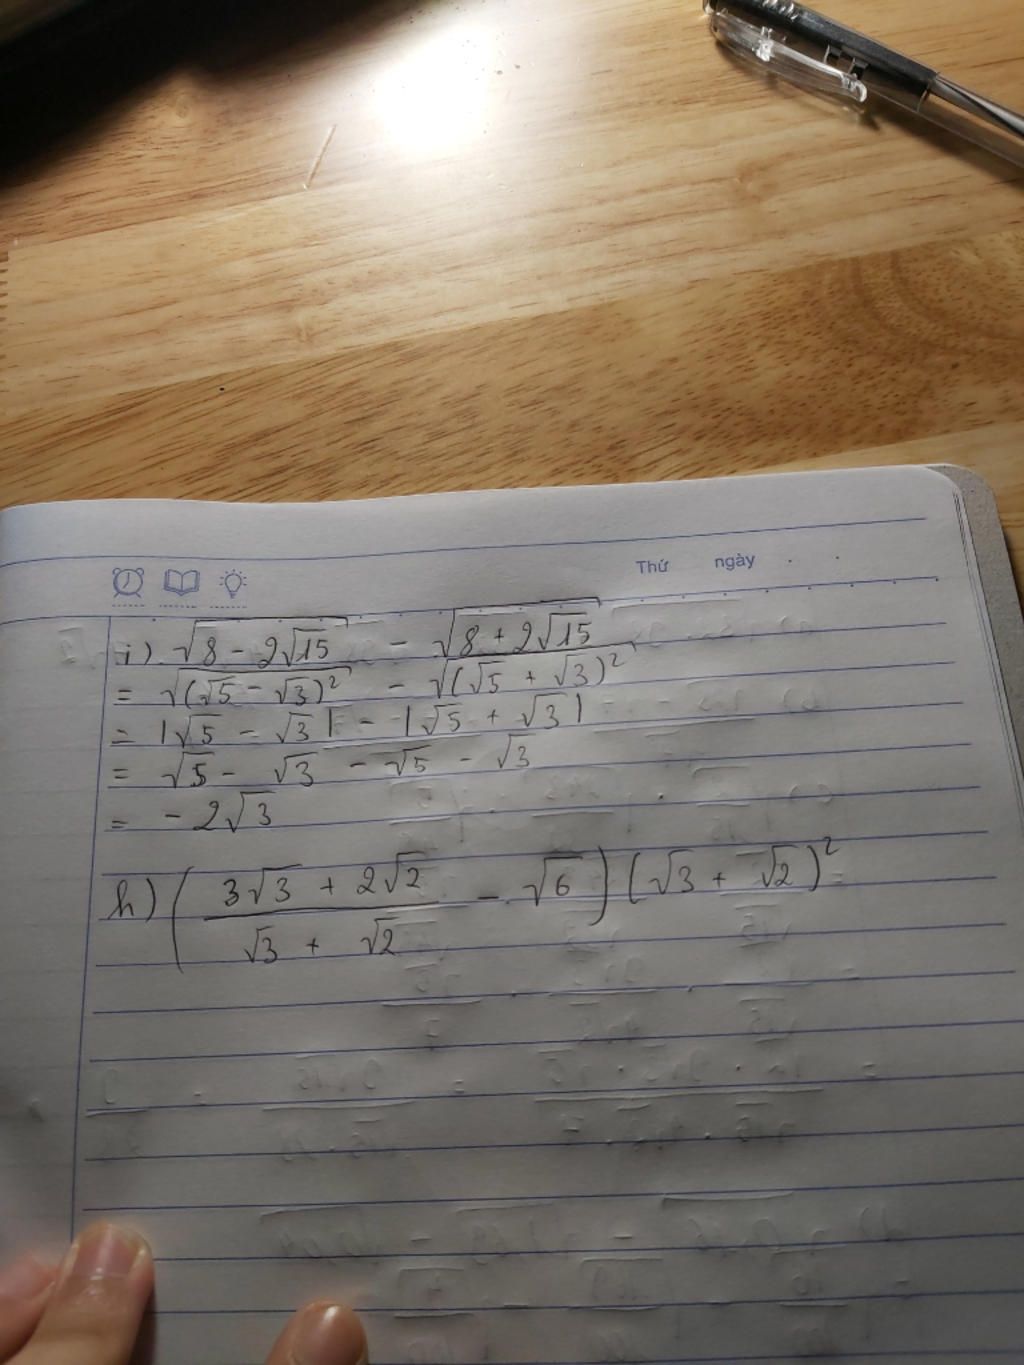 Thứ ngày
i) √(8 - 2√15) - √(8 + 2√15)
= √((√5 - √3)²) - √((√5 + √3)²)
= |√5 - √3| - |√5 + √3|
= √5 - √3 - √5 - √3
= - 2√3
h) ((3√3 + 2√2)/(√3 + √2) - √6)(√3 + √2)² =